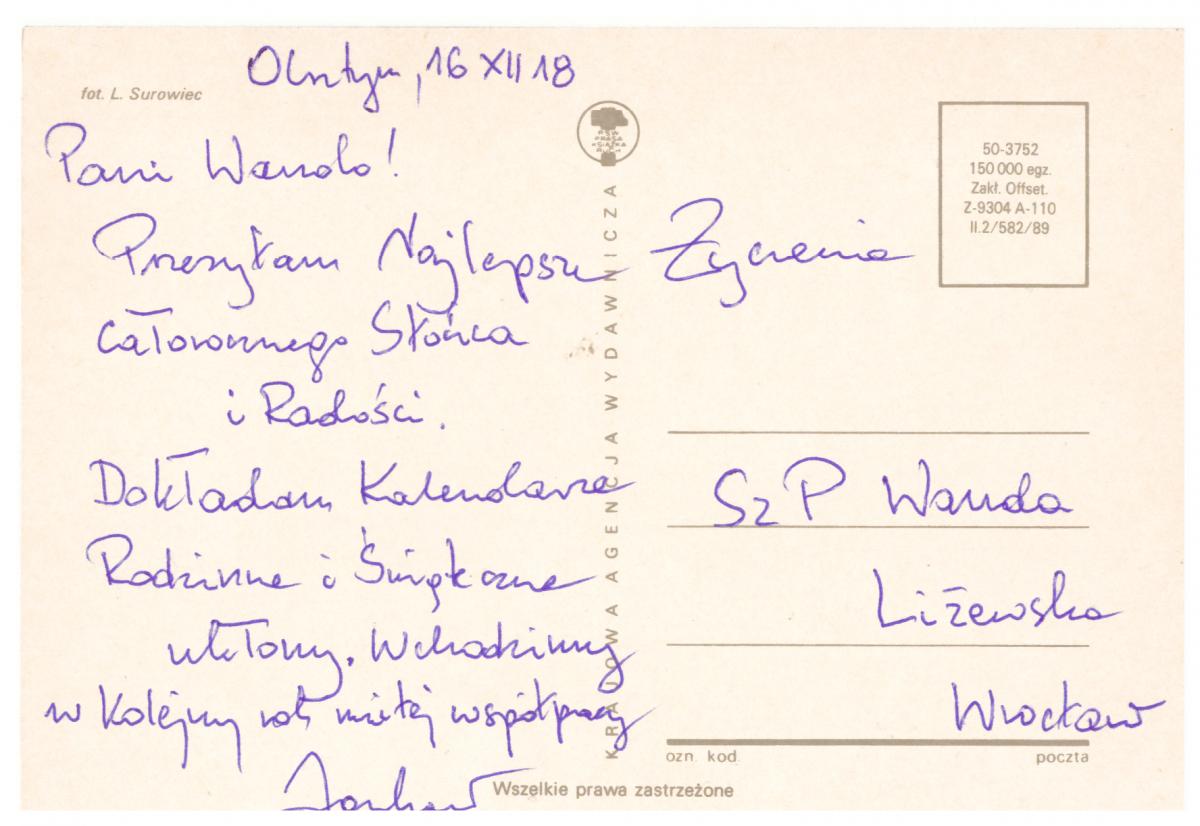 Olsztyn, 16 XII 18
fot. L. Surowiec
Pani Wando!
Przesyłam Najlepsze Życzenia
Całorocznego Słońca
i Radości.
Dokładam Kalendarze
Rodzinne i Świąteczne
ukłony. Wchodzimy
w Kolejny rok miłej współpracy
RSW
PRASA
KSIĄŻKA
RUCH
KRAJOWA AGENCJA WYDAWNICZA
50-3752
150 000 egz.
Zakł. Offset.
Z-9304 A-110
II.2/582/89
Sz P Wanda
Liżewska
Wrocław
ozn. kod. poczta
Wszelkie prawa zastrzeżone